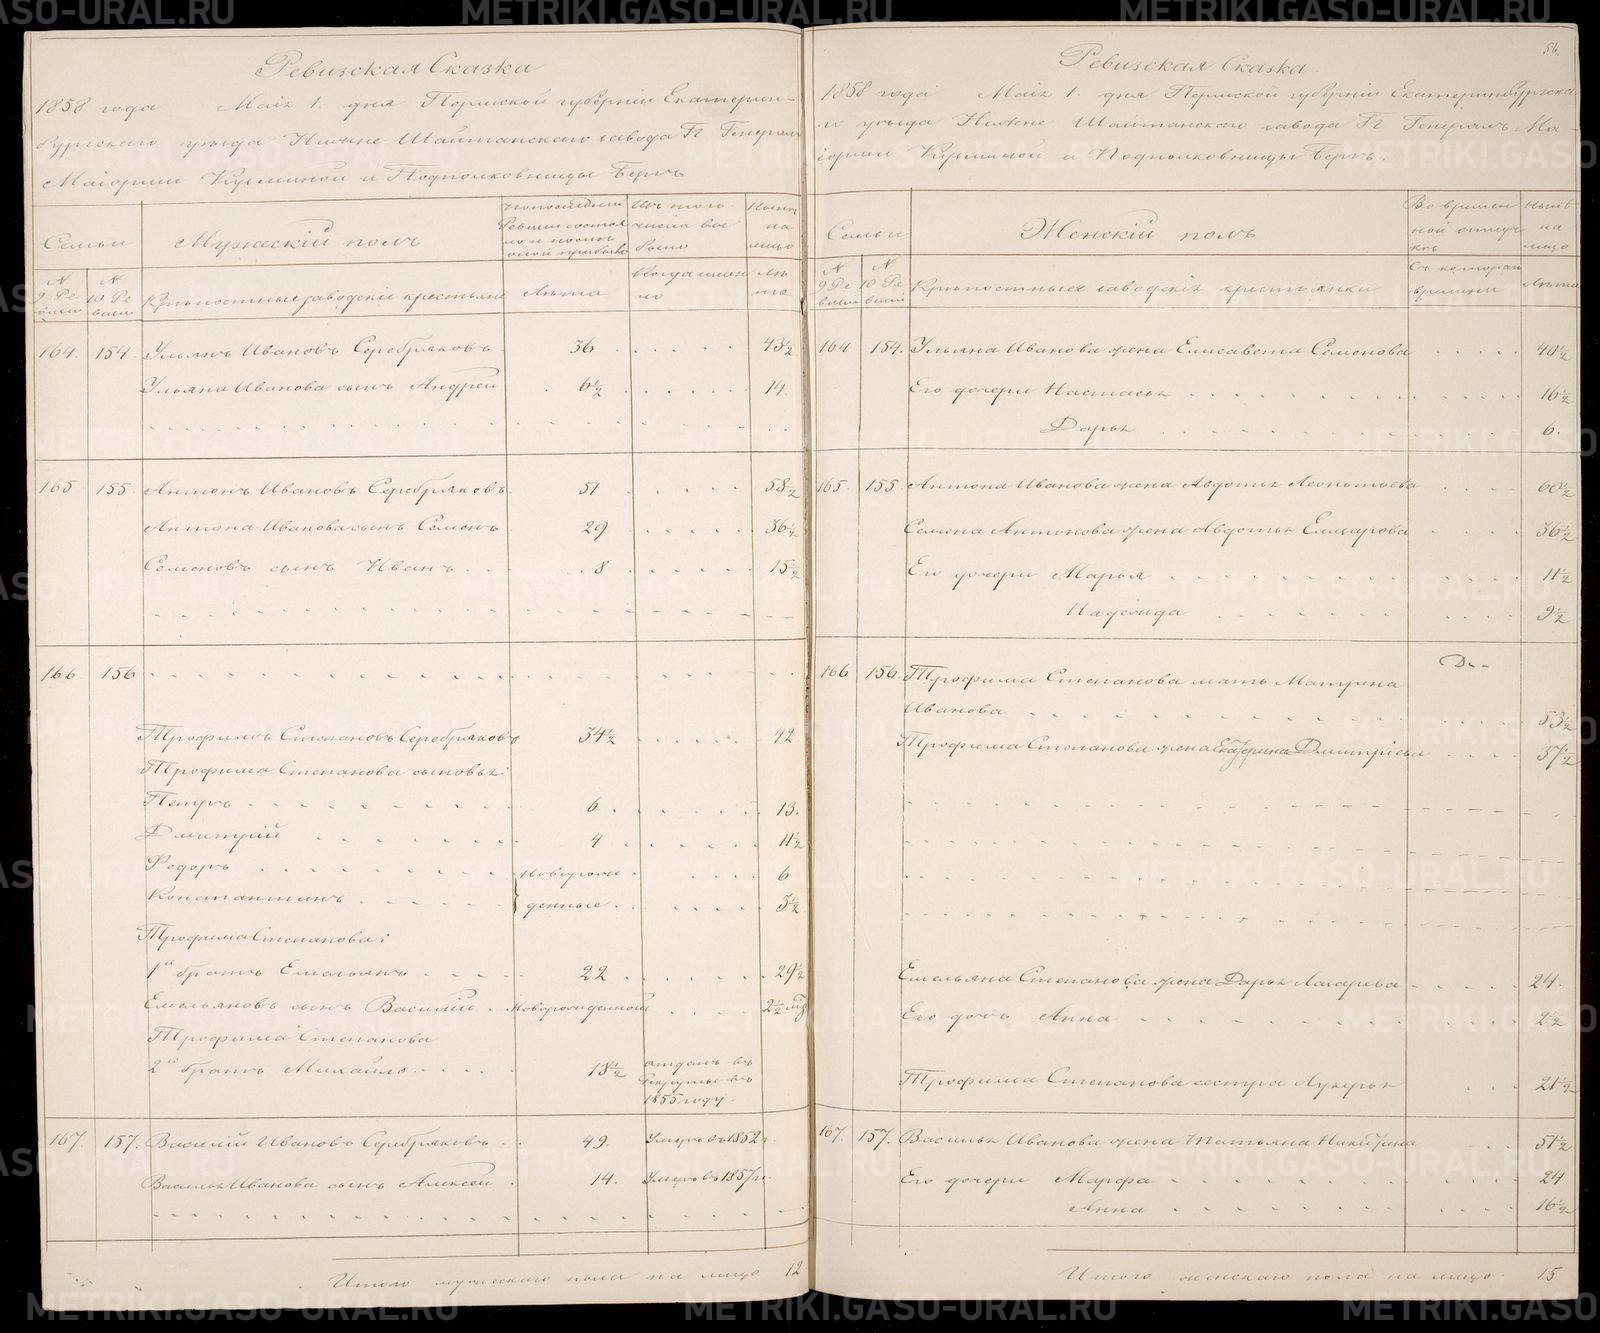 Ревизская Сказка
1858 года Маія 1. дня Пермской губерніи Екатерин-
бургскаго уезда Нижне Шайтанскаго завода Гг Генералъ
Маіорши Кузминой и Подполковницы Бергъ
Семьи
Мужескій полъ
По последней Ревизіи состояло и после оной прибыло
Изъ того числа выбыло
Ныне на лицо
N 9 Ревизіи
N 10 Ревизіи
Крѣпостные заводскіе крестьяне
Лѣта
Когда именно
Лѣта
164. 154 Ульянъ Ивановъ Серебряковъ 36 43½
Ульяна Иванова сынъ Андрей 6½ 14
165 155 Антонъ Ивановъ Серебряковъ 51 58½
Антона Иванова сынъ Семенъ 29 36½
Семеновъ сынъ Иванъ 8 15½
166 156
Трофимъ Степановъ Серебряковъ 34½ 42
Трофима Степанова сыновья:
Петръ 6 13.
Дмитрій 4 11½
Федоръ новорож- 6
Константинъ денные 3½
Трофима Степанова:
1й братъ Емельянъ 22 29½
Емельяновъ сынъ Василій Новорожденной 2½ мц
Трофима Степанова
2й братъ Михайло 18½ отданъ въ рекруты въ 1855 году.
167. 157. Василій Ивановъ Серебряковъ 49. Умеръ въ 1852 г.
Василья Иванова сынъ Алексей 14. Умеръ въ 1857 г.
Итого мужескаго пола на лицо 12
56.
Ревизская Сказка
1858 года Маія 1. дня Пермской губерніи Екатеринбургска-
го уезда Нижне Шайтанскаго завода Гг Генералъ Ма-
іорши Кузминой и Подполковницы Бергъ.
Семьи
Женскій полъ
Во временной отлучкѣ
Ныне на лицо
N 9 Ревизіи
N 10 Ревизіи
Крѣпостныя заводскія крестьянки
Съ котораго времени
Лѣта
164 154. Ульяна Иванова жена Елисавета Семенова 40½
Его дочери Настасья 16½
Дарья 6.
165 155 Антона Иванова жена Авдотья Леонтьева 60½
Семена Антонова жена Авдотья Елизарова 36½
Его дочери Марья 11½
Надежида 9½
166 156. Трофима Степанова мать Матрена
Иванова 53½
Трофима Степанова жена Екатерина Дмитріева 37½
Емельяна Степанова жена Дарья Лазарева 24.
Его дочь Анна 2½
Трофима Степанова сестра Лукерья 21½
167. 157. Василья Иванова жена Татьяна Никитина 51½
Его дочери Марфа 24
Анна 16½
Итого женскаго пола на лицо. 15
METRIKI.GASO-URAL.RU